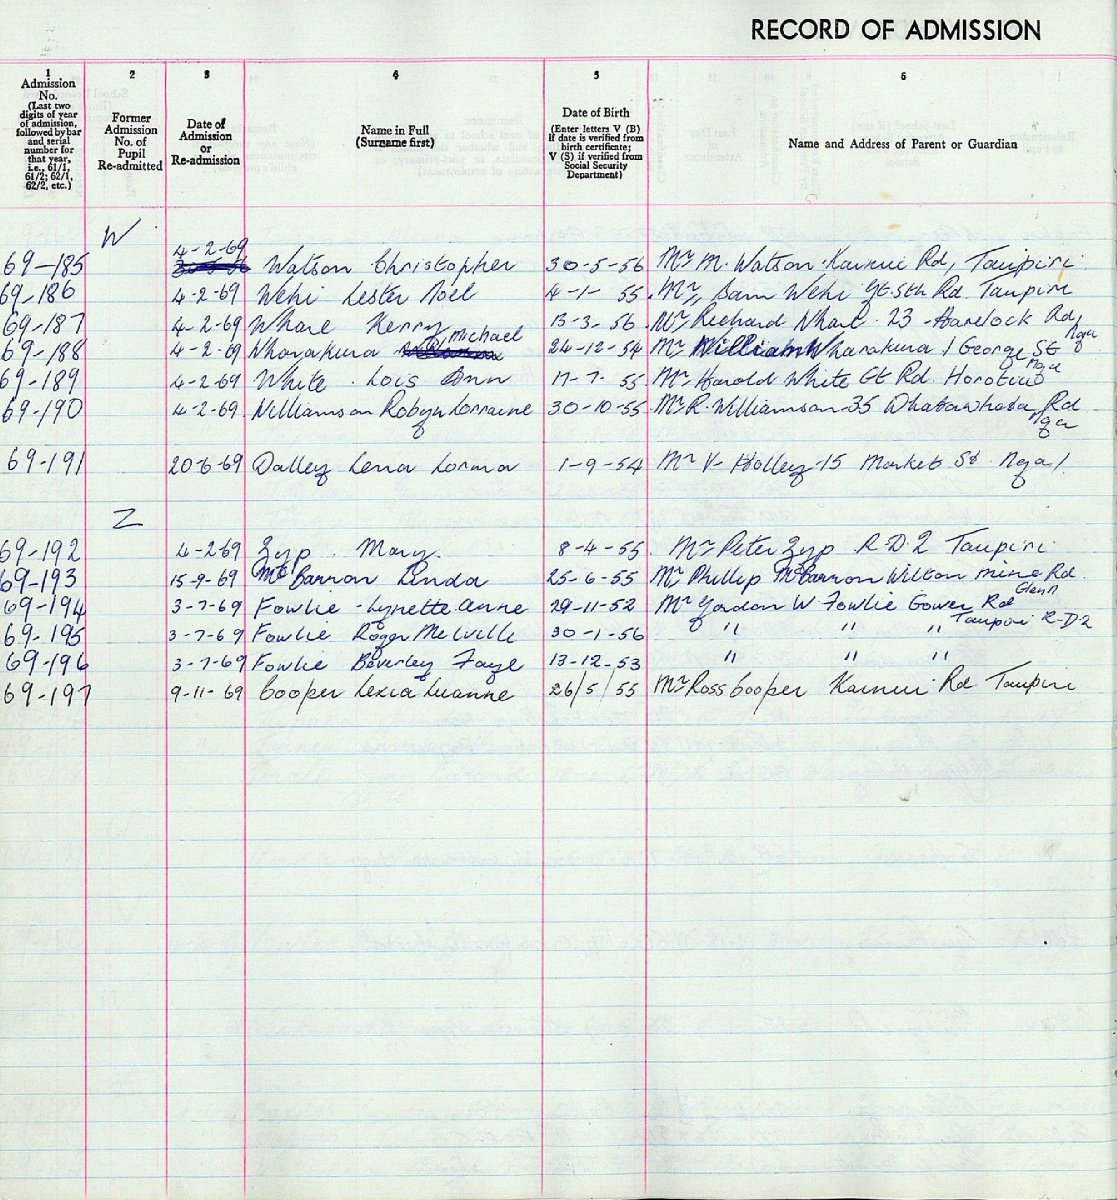 RECORD OF ADMISSION
1 2 3 4 5 6
Admission No. (Last two digits of year of admission, followed by bar and serial number for that year, i.e., 61/1; 61/2; 62/1, 62/2, etc.)
Former Admission No. of Pupil Re-admitted
Date of Admission or Re-admission
Name in Full (Surname first)
Date of Birth (Enter letters V (B) if date is verified from birth certificate; V (S) if verified from Social Security Department)
Name and Address of Parent or Guardian
W
69-185 4-2-69 Watson Christopher 30-5-56 Mr M. Watson Kainui Rd, Taupiri
69-186 4-2-69 Wehi Lester Noel 4-1-55 Mr Sam Wehi Gt. Sth Rd. Taupiri
69-187 4-2-69 Whare Kerry 13-3-56 Mr Richard Whare 23 Havelock Rd, Nga
69-188 4-2-69 Wharakura Michael 24-12-54 Mr William Wharakura 1 George St Nga
69-189 4-2-69 White Lois Ann 17-7-55 Mr Harold White Gt Rd. Horotiu
69-190 4-2-69 Williamson Robyn Lorraine 30-10-55 Mr R. Williamson 35 Whatawhata Rd Nga
69-191 20-6-69 Lena Lorma 1-9-54 Mr V. Holley 15 Market St. Nga
Z
69-192 4-2-69 Zyp Mary 8-4-55 Mr Peter Zyp R.D.2 Taupiri
69-193 15-9-69 McCarron Linda 25-6-55 Mr Phillip McCarron Wilton mine Rd. Glen
69-194 3-7-69 Fowlie Lynette Anne 29-11-52 Mr Gordon W Fowlie Gower Rd Taupiri R.D.2
69-195 3-7-69 Fowlie Roger Melville 30-1-56 " " "
69-196 3-7-69 Fowlie Beverley Faye 13-12-53 " " "
69-197 9-11-69 Cooper Lexia Luanne 26/5/55 Mr Ross Cooper Kainui Rd Taupiri